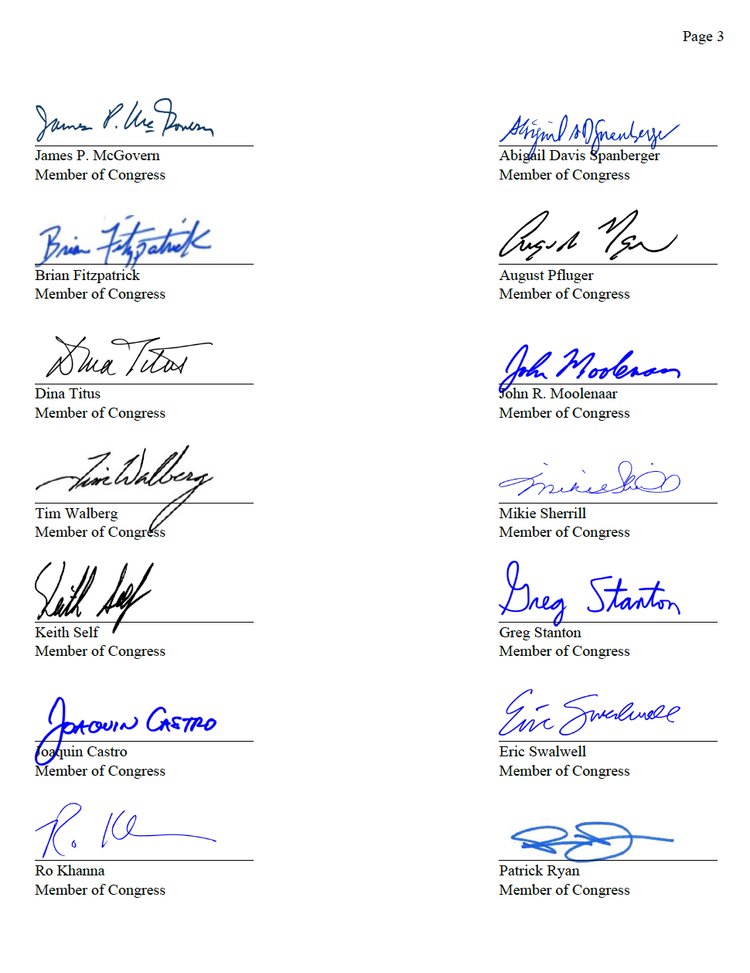 Page 3
James P. McGovern
James P. McGovern
Member of Congress
Abigail D Spanberger
Abigail Davis Spanberger
Member of Congress
Brian Fitzpatrick
Brian Fitzpatrick
Member of Congress
August Pfluger
Member of Congress
Dina Titus
Dina Titus
Member of Congress
John Moolenaar
John R. Moolenaar
Member of Congress
Tim Walberg
Tim Walberg
Member of Congress
Mikie Sherrill
Mikie Sherrill
Member of Congress
Keith Self
Keith Self
Member of Congress
Greg Stanton
Greg Stanton
Member of Congress
Joaquin Castro
Joaquin Castro
Member of Congress
Eric Swalwell
Eric Swalwell
Member of Congress
Ro Khanna
Member of Congress
Patrick Ryan
Member of Congress